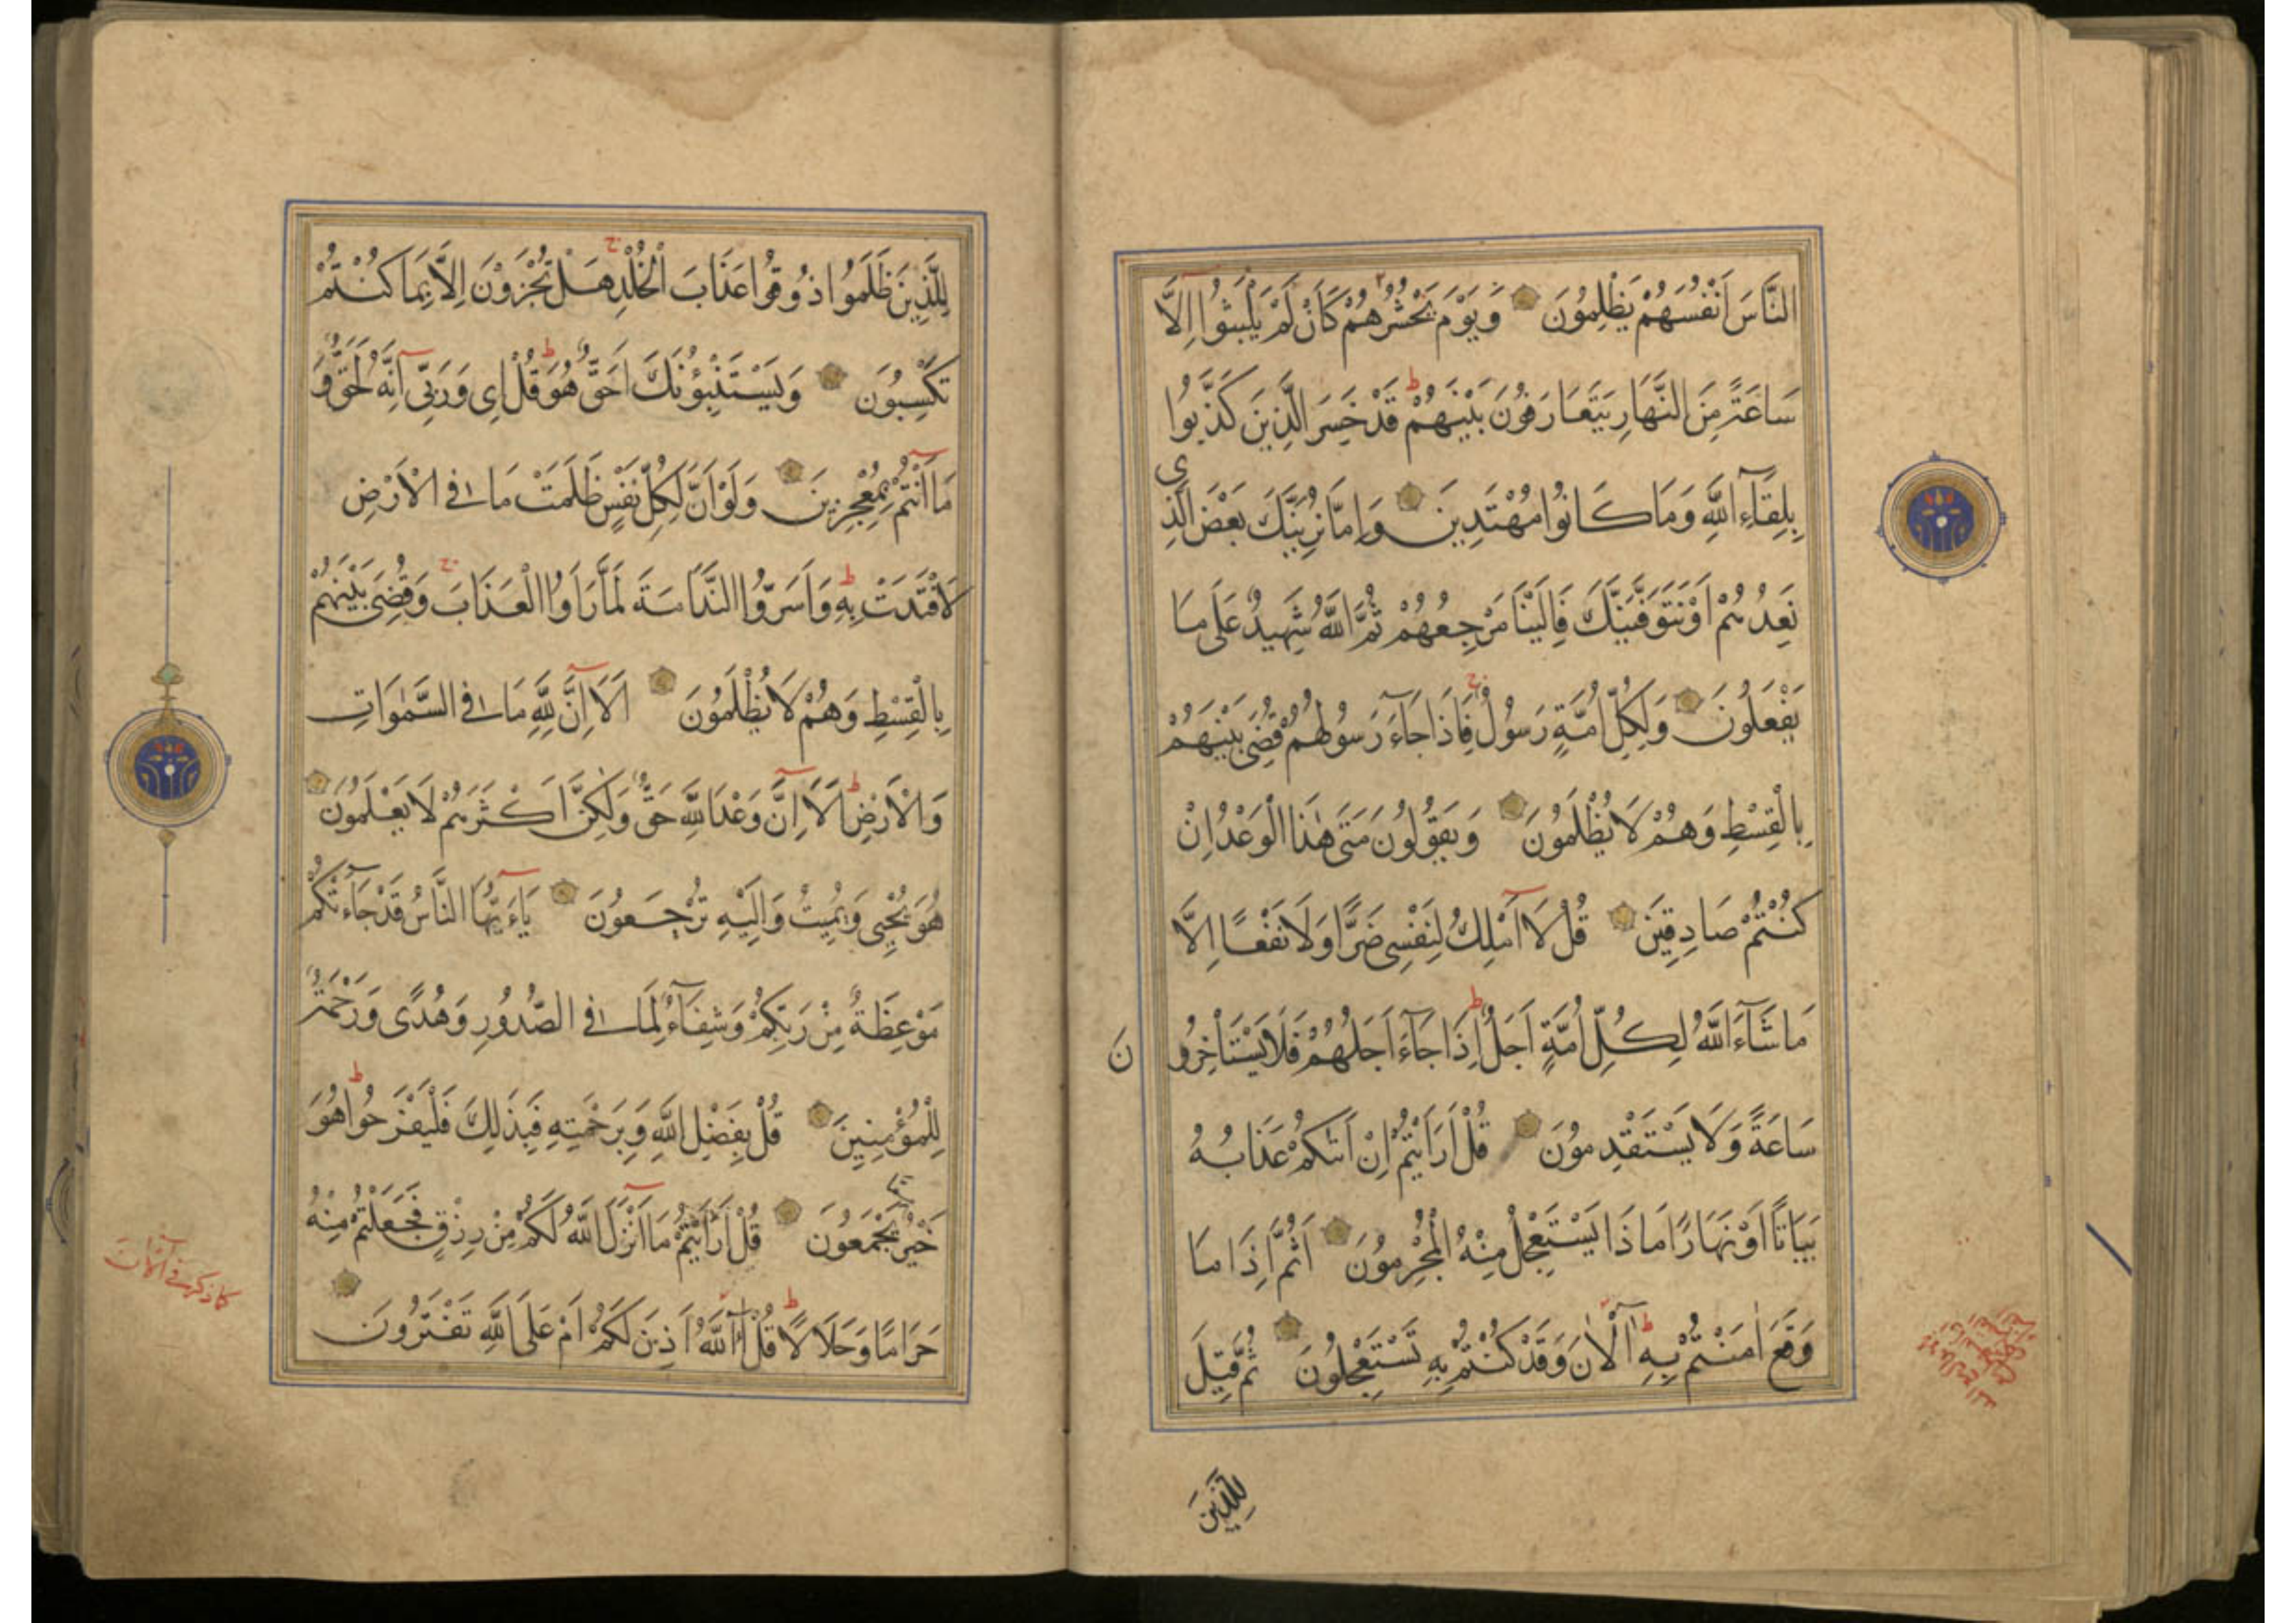 النَّاسَ اَنْفُسَهُمْ يَظْلِمُونَ وَيَوْمَ يَحْشُرُهُمْ كَاَنْ لَمْ يَلْبَثُوا اِلَّا
سَاعَةً مِنَ النَّهَارِ يَتَعَارَفُونَ بَيْنَهُمْ قَدْ خَسِرَ الَّذِينَ كَذَّبُوا
بِلِقَآءِ اللَّهِ وَمَا كَانُوا مُهْتَدِينَ وَاِمَّا نُرِيَنَّكَ بَعْضَ الَّذِي
نَعِدُهُمْ اَوْ نَتَوَفَّيَنَّكَ فَاِلَيْنَا مَرْجِعُهُمْ ثُمَّ اللَّهُ شَهِيدٌ عَلَى مَا
يَفْعَلُونَ وَلِكُلِّ اُمَّةٍ رَسُولٌ فَاِذَا جَآءَ رَسُولُهُمْ قُضِىَ بَيْنَهُمْ
بِالْقِسْطِ وَهُمْ لَا يُظْلَمُونَ وَيَقُولُونَ مَتَى هٰذَا الْوَعْدُ اِنْ
كُنْتُمْ صَادِقِينَ قُلْ لَا اَمْلِكُ لِنَفْسِى ضَرًّا وَلَا نَفْعًا اِلَّا
مَا شَآءَ اللَّهُ لِكُلِّ اُمَّةٍ اَجَلٌ اِذَا جَآءَ اَجَلُهُمْ فَلَا يَسْتَاْخِرُونَ
سَاعَةً وَلَا يَسْتَقْدِمُونَ قُلْ اَرَاَيْتُمْ اِنْ اَتٰىكُمْ عَذَابُهُ
بَيَاتًا اَوْ نَهَارًا مَاذَا يَسْتَعْجِلُ مِنْهُ الْمُجْرِمُونَ اَثُمَّ اِذَا مَا
وَقَعَ اٰمَنْتُمْ بِهِ آلْاٰنَ وَقَدْ كُنْتُمْ بِهِ تَسْتَعْجِلُونَ ثُمَّ قِيلَ
لِلَّذِينَ
لِلَّذِينَ ظَلَمُوا ذُوقُوا عَذَابَ الْخُلْدِ هَلْ تُجْزَوْنَ اِلَّا بِمَا كُنْتُمْ
تَكْسِبُونَ وَيَسْتَنْبِؤُنَكَ اَحَقٌّ هُوَ قُلْ اِى وَرَبِّى اِنَّهُ لَحَقٌّ وَ
مَا اَنْتُمْ بِمُعْجِزِينَ وَلَوْ اَنَّ لِكُلِّ نَفْسٍ ظَلَمَتْ مَا فِى الْاَرْضِ
لَافْتَدَتْ بِهِ وَاَسَرُّوا النَّدَامَةَ لَمَّا رَاَوُا الْعَذَابَ وَقُضِىَ بَيْنَهُمْ
بِالْقِسْطِ وَهُمْ لَا يُظْلَمُونَ اَلَا اِنَّ لِلَّهِ مَا فِى السَّمٰوَاتِ
وَالْاَرْضِ اَلَا اِنَّ وَعْدَ اللَّهِ حَقٌّ وَلٰكِنَّ اَكْثَرَهُمْ لَا يَعْلَمُونَ
هُوَ يُحْيِى وَيُمِيتُ وَاِلَيْهِ تُرْجَعُونَ يَآءَيُّهَا النَّاسُ قَدْ جَآءَتْكُمْ
مَوْعِظَةٌ مِنْ رَبِّكُمْ وَشِفَآءٌ لِمَا فِى الصُّدُورِ وَهُدًى وَرَحْمَةٌ
لِلْمُؤْمِنِينَ قُلْ بِفَضْلِ اللَّهِ وَبِرَحْمَتِهِ فَبِذَلِكَ فَلْيَفْرَحُوا هُوَ
خَيْرٌ مِمَّا يَجْمَعُونَ قُلْ اَرَاَيْتُمْ مَا اَنْزَلَ اللَّهُ لَكُمْ مِنْ رِزْقٍ فَجَعَلْتُمْ مِنْهُ
حَرَامًا وَحَلَالًا قُلْ آللَّهُ اَذِنَ لَكُمْ اَمْ عَلَى اللَّهِ تَفْتَرُونَ